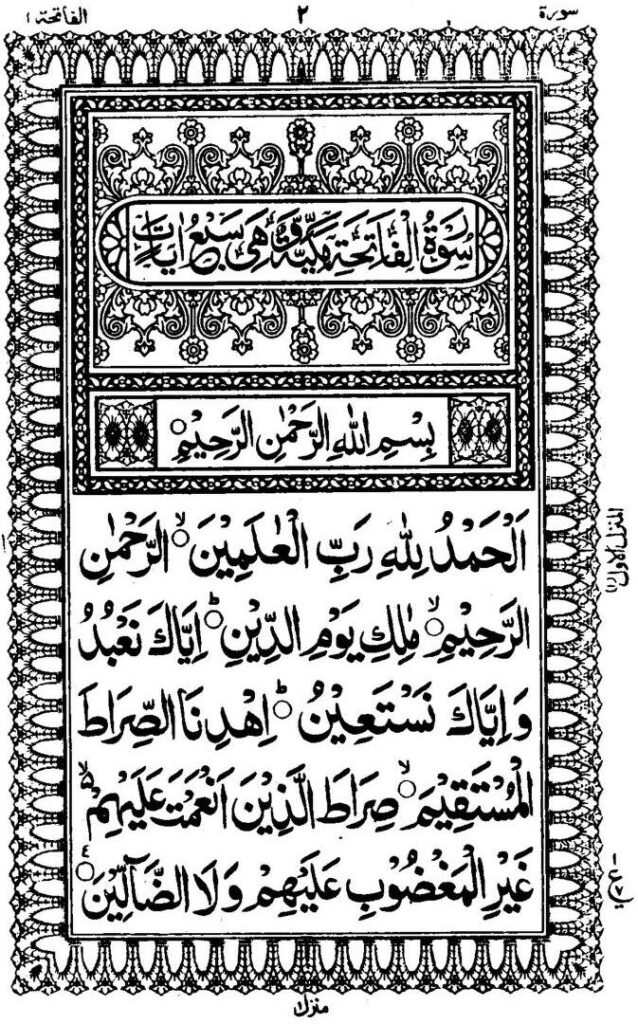 سورة ٢ الفاتحة ١
سُوْرَةُ الْفَاتِحَةِ مَكِّيَّةٌ وَّهِيَ سَبْعُ اٰيَاتٍ
بِسْمِ اللّٰهِ الرَّحْمٰنِ الرَّحِيْمِ
اَلْحَمْدُ لِلّٰهِ رَبِّ الْعٰلَمِيْنَ ۙ الرَّحْمٰنِ
الرَّحِيْمِ ۙ مٰلِكِ يَوْمِ الدِّيْنِ ؕ اِيَّاكَ نَعْبُدُ
وَاِيَّاكَ نَسْتَعِيْنُ ؕ اِهْدِنَا الصِّرَاطَ
الْمُسْتَقِيْمَ ۙ صِرَاطَ الَّذِيْنَ اَنْعَمْتَ عَلَيْهِمْ ۙ
غَيْرِ الْمَغْضُوْبِ عَلَيْهِمْ وَلَا الضَّآلِّيْنَ
المنزل الاول
منزل